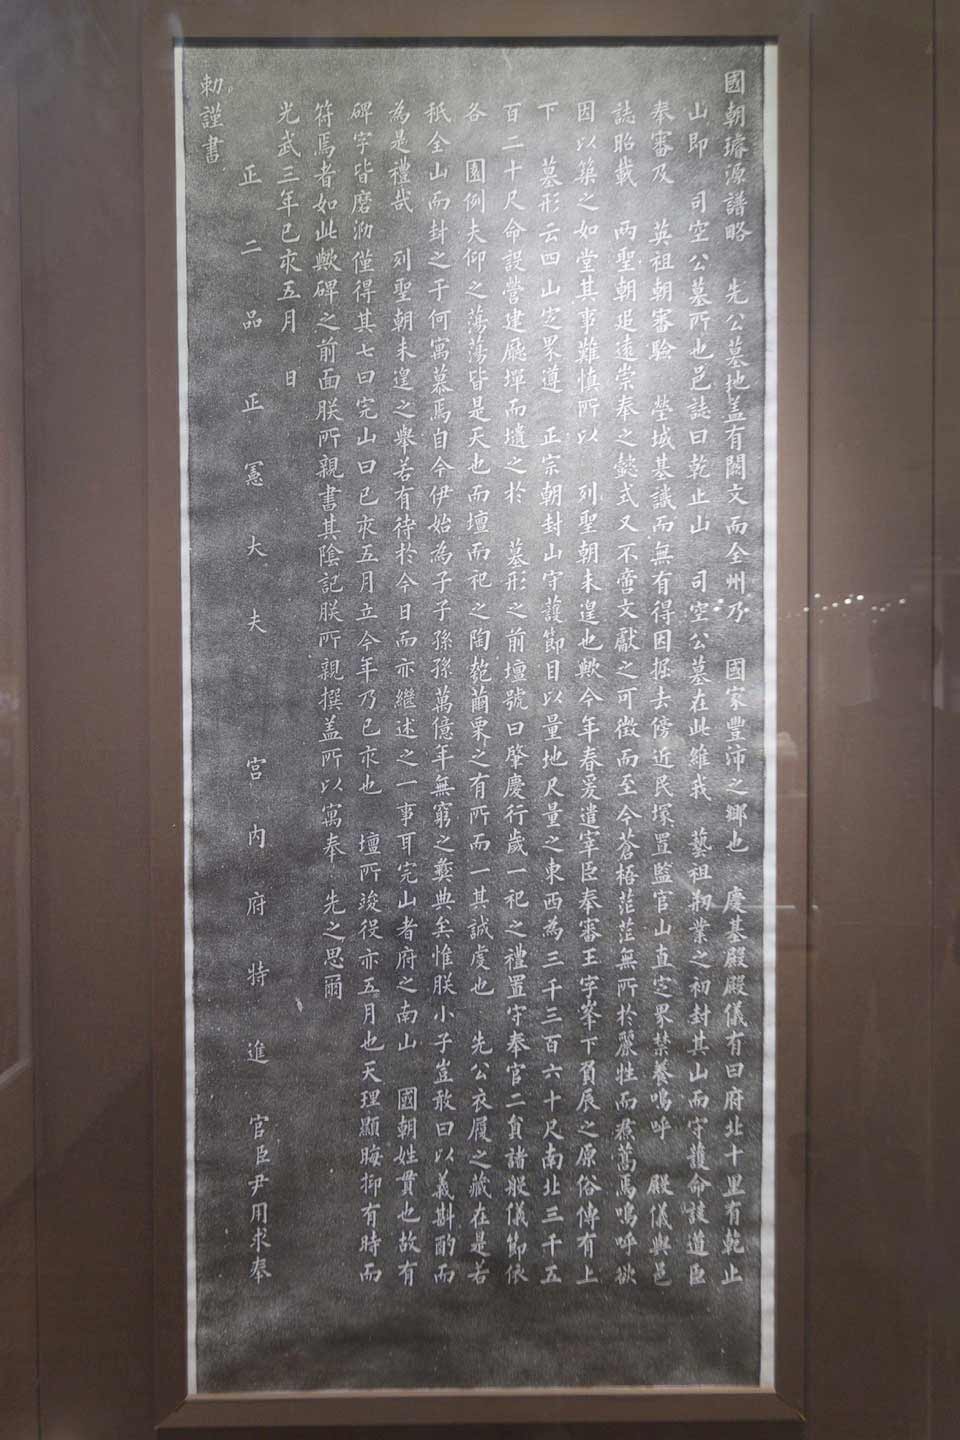 國朝璿源譜略 先公墓地盖有闕文而全州乃 國家豐沛之鄉也 慶基殿殿儀有曰府北十里有乾止
山即 司空公墓所也邑誌曰乾止山 司空公墓在此維我 藝祖刱業之初封其山而守護命該道臣
奉審及 英祖朝審驗 塋域基識而無有得因掘去傍近民塚置監官山直定界禁養嗚呼 殿儀與邑
誌昭載 兩聖朝追遠崇奉之懿式又不啻文獻之可徵而至今蒼梧茫茫無所於麗牲而焄蒿焉嗚呼欲
因以築之如堂其事難慎所以 列聖朝未遑也歟今年春爰遣宰臣奉審王字峯下負辰之原俗傳有上
下 墓形云四山定界遵 正宗朝封山守護節目以量地尺量之東西為三千三百六十尺南北三千五
百二十尺命設營建廳墠而壝之於 墓形之前壇號曰肇慶行歲一祀之禮置守奉官二員諸般儀節依
各 園例夫仰之蕩蕩皆是天也而壇而祀之陶匏繭栗之有所而一其誠虔也 先公衣履之藏在是若
秖全山而封之于何寓慕焉自今伊始為子子孫孫萬億年無窮之彝典矣惟朕小子豈敢曰以義斟酌而
為是禮哉 列聖朝未遑之舉若有待於今日而亦繼述之一事耳完山者府之南山 國朝姓貫也故有
碑字皆磨泐僅得其七曰完山曰己亥五月立今年乃己亥也 壇所竣役亦五月也天理顯晦抑有時而
符焉者如此歟碑之前面朕所親書其陰記朕所親撰盖所以寓奉 先之思爾
光武三年己亥五月 日
正二品正憲大夫宮內府特進官臣尹用求奉
勅謹書